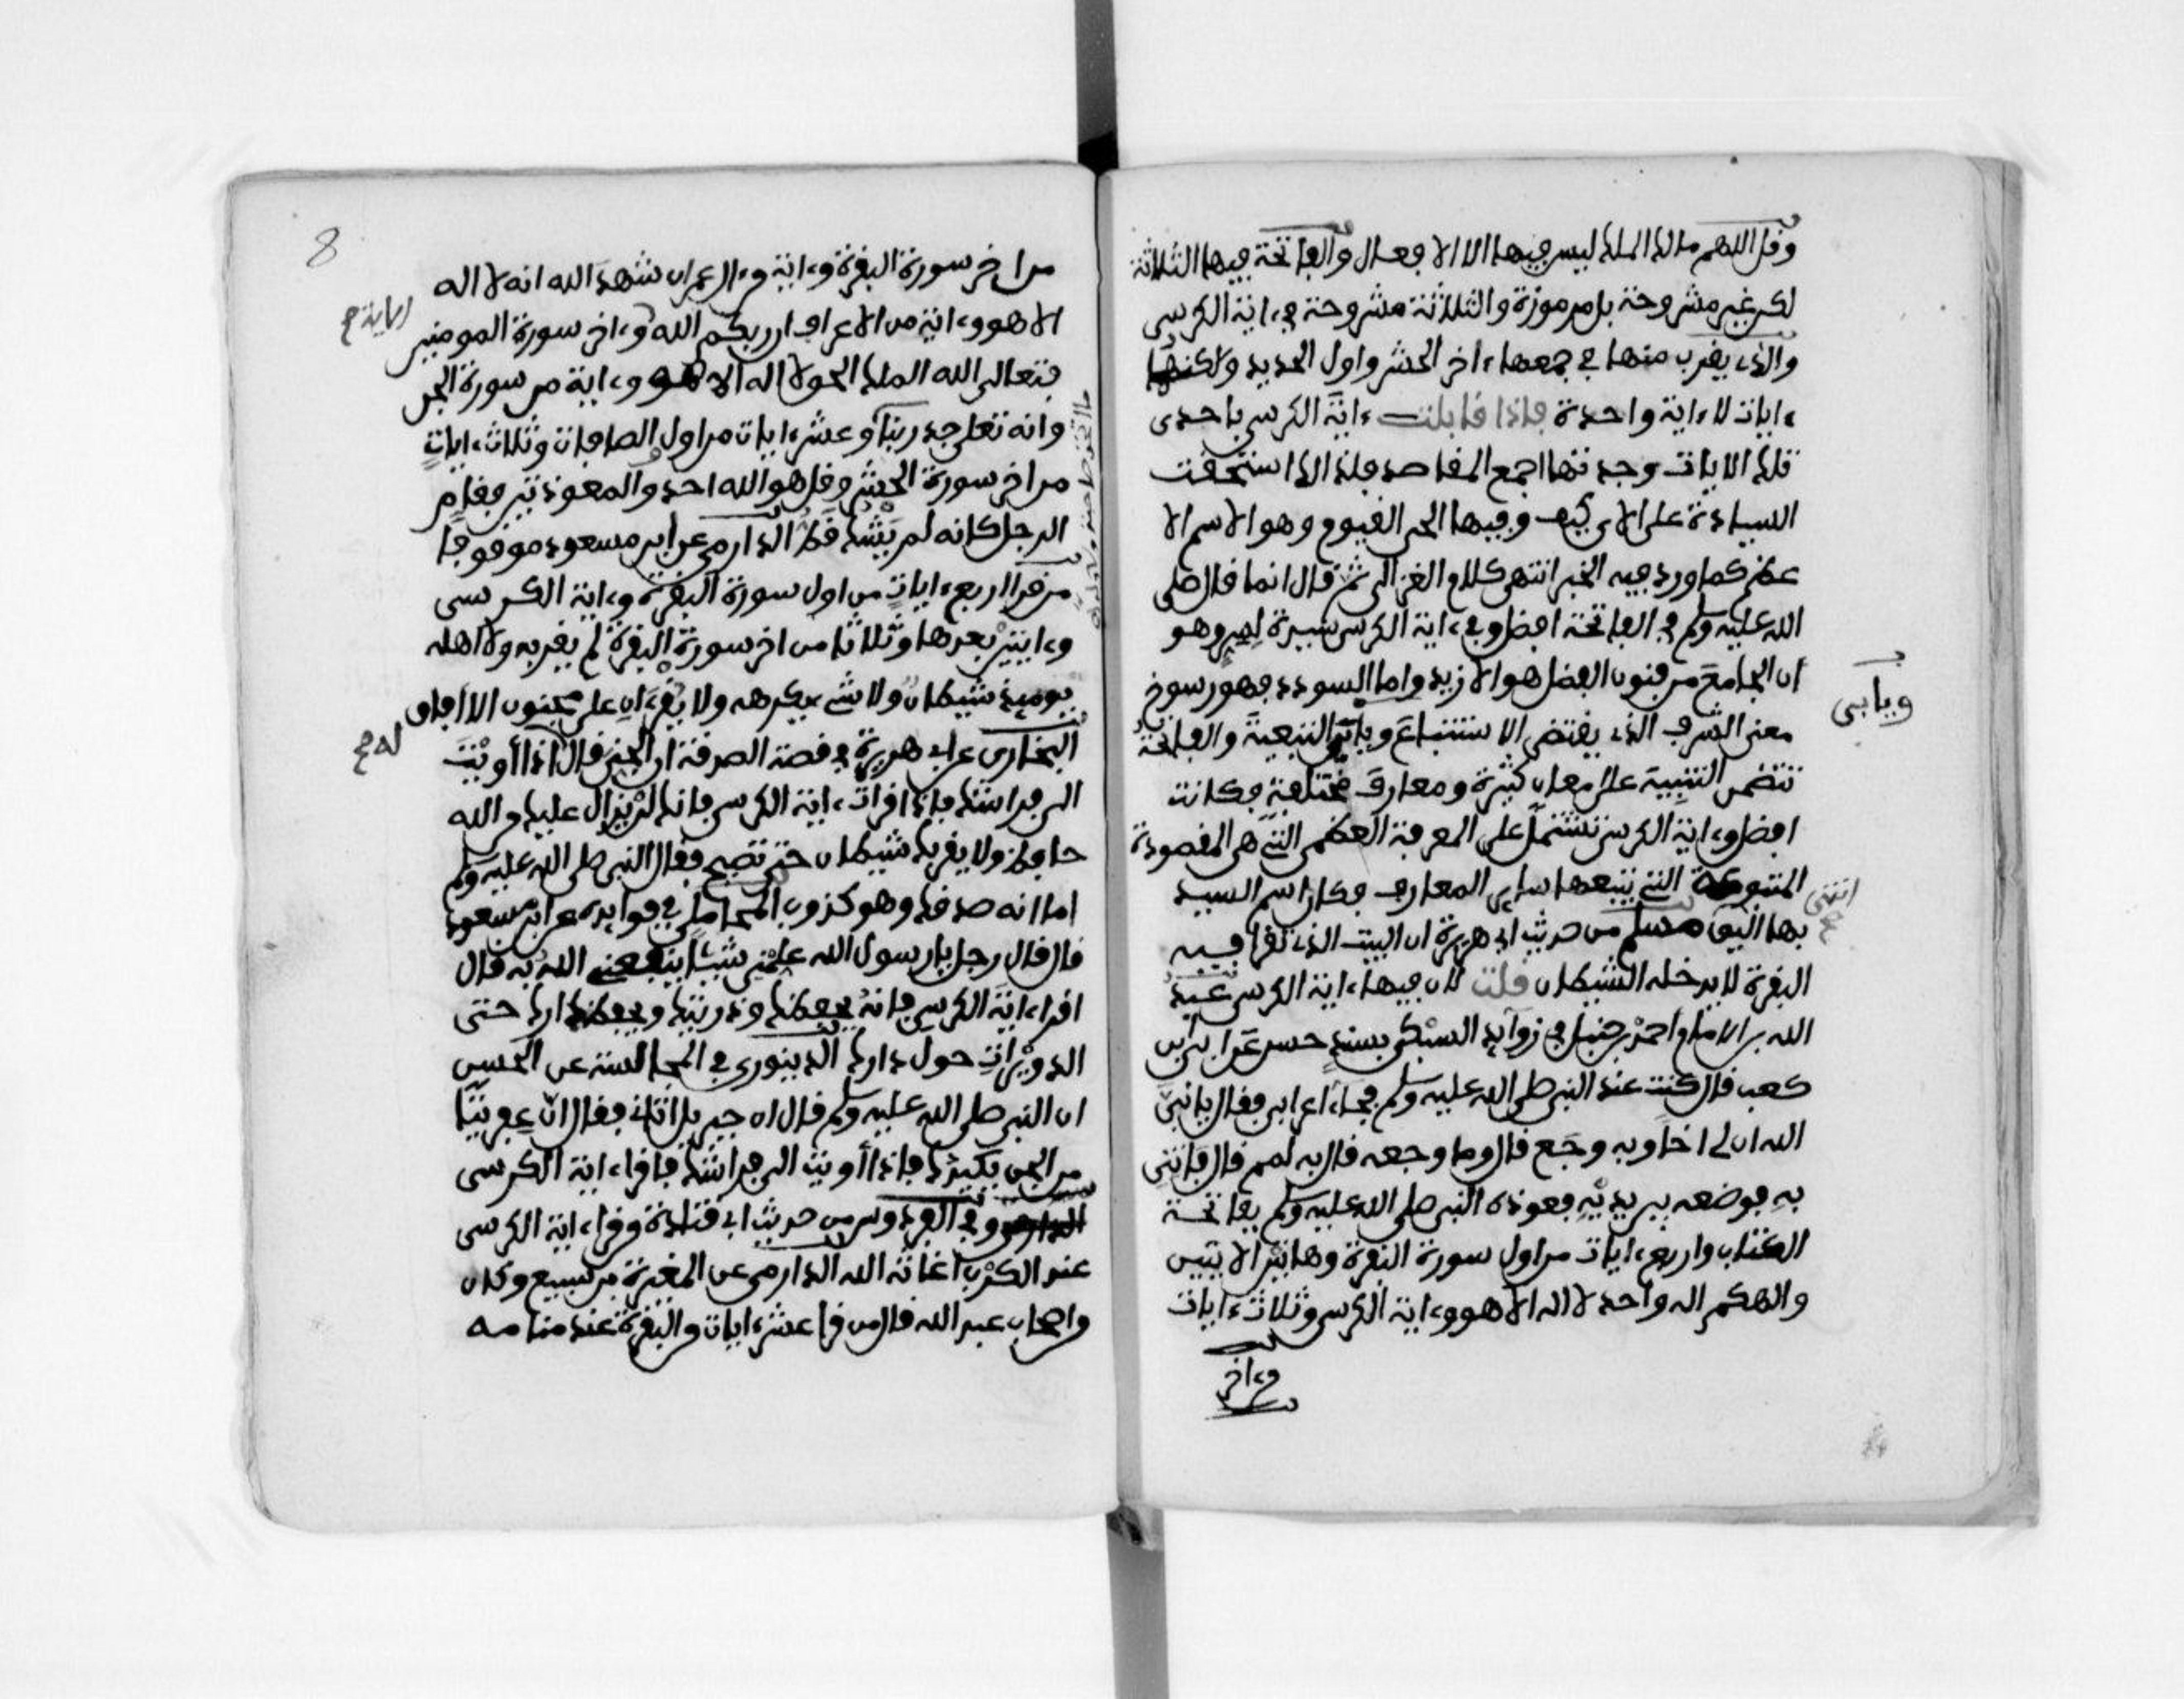 وقل اللهم مالك الملك ليس فيها الا الافعال والفاتحة فيها الثلاثة
لكن غير مشروحة بل مرموزة والثلاثة مشروحة في ءاية الكرسي
والذي يقرب منها في جمعها ءاخر الحشر واول الحديد ولكنها
ءايات لا ءاية واحدة فاذا قابلت ءاية الكرسي باحدى
تلك الايات وجدتها اجمع المقاصد فلذالك استحقت
السيادة على الاي كيف وفيها الحي القيوم وهو الاسم الا
عظم كما ورد فيه الخبر انتهى كلام الغزالي ثم قال انما قال صلى
الله عليه وسلم في الفاتحة افضل وفي ءاية الكرسي سيدة لسر وهو
ان الجامع من فنون الفضل هو الازيد واما السودد فهو رسوخ
معنى الشرف الذي يقتضي الاستتباع ويابى التبعية والفاتحة
ويابى
تتضمن التنبيه على معان كثيرة ومعارف مختلفة فكانت
افضل وءاية الكرسي تشتمل على المعرفة العظمى التي هي المقصودة
المتبوعة التي يتبعها ساير المعارف فكان اسم السيد
بها اليق انتهى مسلم من حديث ابي هريرة ان البيت الذي تقرا فيه
البقرة لا يدخله الشيطان قلت لان فيها ءاية الكرسي عبد
الله بن الامام احمد بن حنبل في زوآيد المسند بسند حسن عن ابي بن
كعب قال كنت عند النبي صلى الله عليه وسلم فجاء اعرابي فقال يا نبي
الله ان لي اخا وبه وجع قال وما وجعه قال به لمم قال فاتني
به فوضعه بين يديه فعوذه النبي صلى الله عليه وسلم بفاتحة
الكتاب واربع ءايات من اول سورة البقرة وهاتين الايتين
والهكم اله واحد لا اله الا هو وءاية الكرسي وثلاث ءايات
من ءاخر
8
من اخر سورة البقرة وءاية من ءال عمران شهد الله انه لا اله
الا هو وءاية من الاعراف ان ربكم الله وءاخر سورة المومنين
فتعالى الله الملك الحق لا اله الا هو وءاية من سورة الجن
وانه تعلى جد ربنا وعشر ءايات من اول الصافات وثلاث ءايات
من اخر سورة الحشر وقل هو الله احد والمعوذتين فقام
الرجل كانه لم يشك قط الدارمي عن ابن مسعود موقوفا
من قرا اربع ءايات من اول سورة البقرة وءاية الكرسي
وءايتين بعدها وثلاثا من اخر سورة البقرة لم يقربه ولا اهله
يوميذ شيطان ولا شيء يكرهه ولا يقرءان على مجنون الا افاق
البخاري عن ابي هريرة في قصة الصدقة ان الجني قال له اذا أويت
الى فراشك فاذا قرات ءاية الكرسي فانك لن يزال عليك من الله
حافظ ولا يقربك شيطان حتى تصبح فقال النبي صلى الله عليه وسلم
اما انه صدقك وهو كذوب المحاملي في فوايده عن ابن مسعود
قال قال رجل يا رسول الله علمني شيئا ينفعني الله به قال
اقراء ءاية الكرسي فانه يحفظك وذريتك ويحفظ دارك حتى
الدويرات حول دارك الدينوري في المجالسة عن الحسن
ان النبي صلى الله عليه وسلم قال ان جبريل اتاني فقال ان عفريتا
من الجن يكيدك فاذا أويت الى فراشك فاقراء ءاية الكرسي
وفي الفردوس من حديث ابي قتادة من قراء ءاية الكرسي
عند الكرب اغاثه الله الدارمي عن المغيرة بن سبيع وكان
من اصحاب عبد الله قال من قرا عشر ءايات من البقرة عند منامه